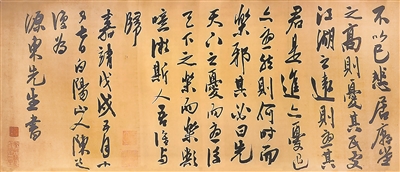 不以己悲居廟堂
之高則憂其民處
江湖之遠則憂其
君是進亦憂退
亦憂然則何時而
樂邪其必曰先
天下之憂而憂後
天下之樂而樂與
噫微斯人吾誰與
歸
嘉靖戊戌五月
白陽山人陳道
復為
先生書